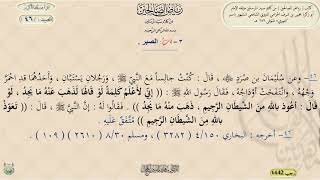 رياض الصالحين
٣ - باب الصبر
٤٦ - وعن سُلَيْمانَ بْنِ صُرَدٍ ﷺ ، قَالَ : كُنْتُ جالِساً مَعَ النَّبيِّ ﷺ ، وَرَجُلانِ يَسْتَبَّانِ ، وَأَحَدُهُمَا قَدِ احْمَرَّ
وَجْهُهُ ، وانْتَفَخَتْ أوْدَاجُهُ ، فَقَالَ رَسُول اللهِ ﷺ : (( إِنِّي لأَعْلَمُ كَلِمَةً لَوْ قَالَهَا لَذَهَبَ عَنْهُ مَا يَجِدُ ، لَوْ
قَالَ : أعُوذ باللهِ مِنَ الشَّيطَانِ الرَّجِيمِ ، ذَهَبَ منْهُ مَا يَجِدُ )) . فَقَالُوا لَهُ : إنَّ النَّبيَّ ﷺ ، قَالَ : (( تَعَوّذْ
باللهِ مِنَ الشَّيطَانِ الرَّجِيمِ )) مُتَّفَقٌ عَلَيهِ .
٤٦ - أخرجه : البخاري ٤/١٥٠ ( ٣٢٨٢ ) ، ومسلم ٨/٣٠ ( ٢٦١٠ ) ( ١٠٩ ) .
رجب 1442